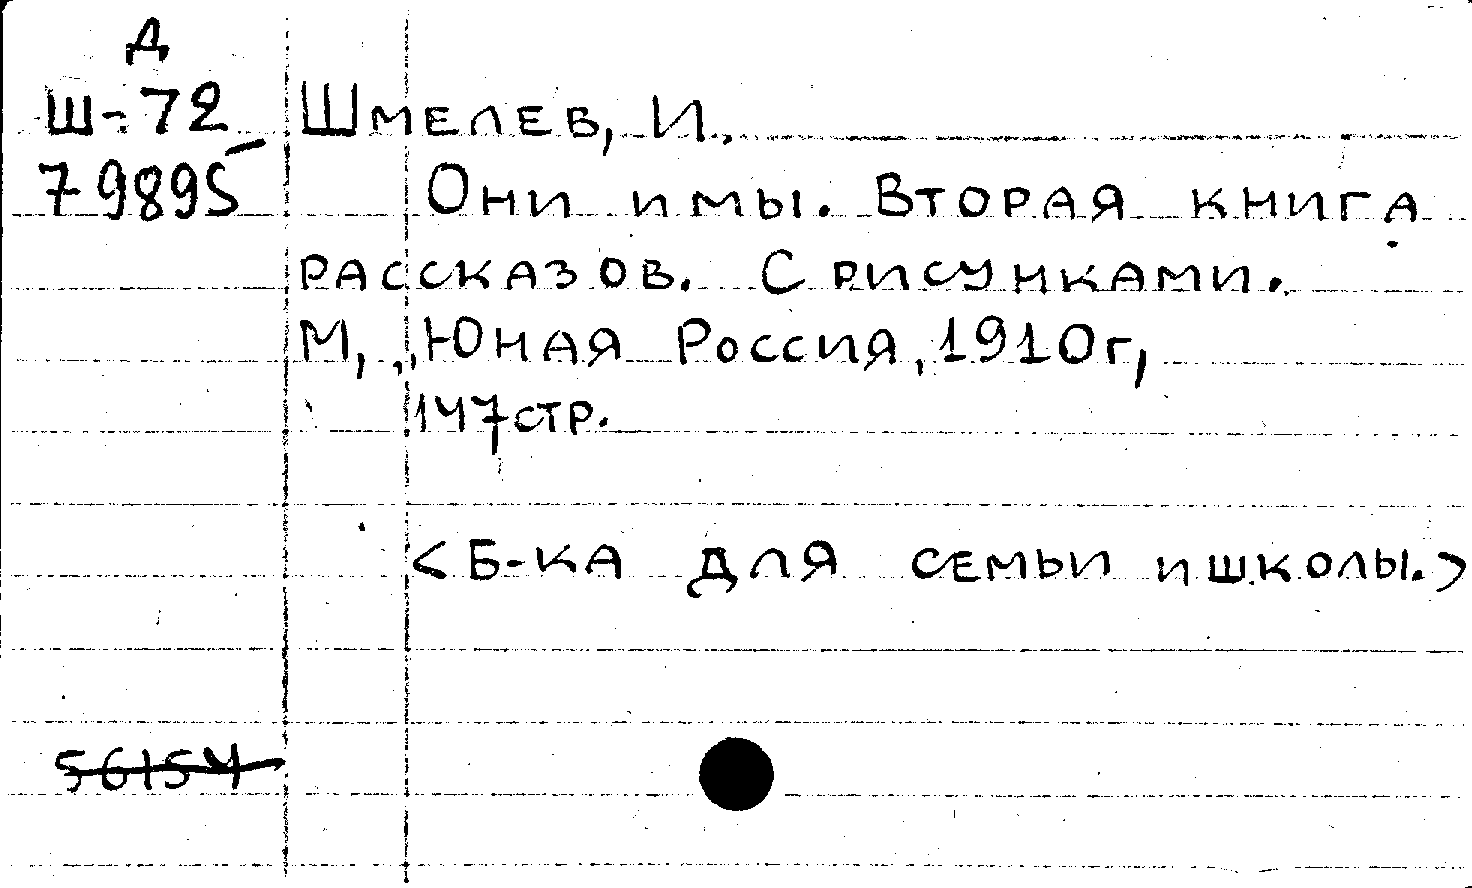 Д
Ш-72
79895
Шмелев, И.,
Они и мы. Вторая книга
рассказов. С рисунками.
М, „Юная Россия, 1910г,
147стр.
<Б-ка для семьи и школы.>
56154